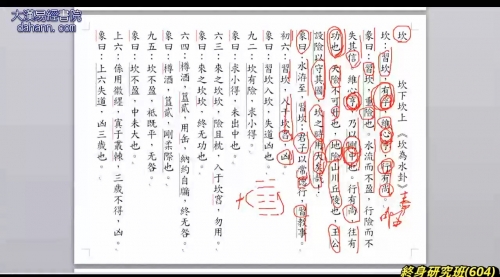 大漢易經書院
dahann.com
坎 坎下坎上 《坎為水卦》
坎：習坎，有孚，維心亨，行有尚。
彖曰：習坎，重險也。水流而不盈，行險而不
失其信，維心亨，乃以剛中也。行有尚，往有
功也。天險不可升也，地險山川丘陵也，王公
設險以守其國，坎之時用大矣哉！
象曰：水洊至，習坎；君子以常德行，習教事。
初六：習坎，入于坎窞，凶。
象曰：習坎入坎，失道凶也。
九二：坎有險，求小得。
象曰：求小得，未出中也。
六三：來之坎坎，險且枕，入于坎窞，勿用。
象曰：來之坎坎，終无功也。
六四：樽酒，簋貳，用缶，納約自牖，終无咎。
象曰：樽酒，簋貳，剛柔際也。
九五：坎不盈，祇既平，无咎。
象曰：坎不盈，中未大也。
上六：係用徽纆，寘于叢棘，三歲不得，凶。
象曰：上六失道，凶三歲也。
終身研究班(604)